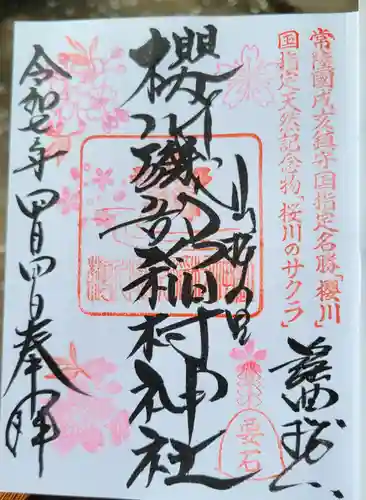 常陸國戌亥鎮守国指定名勝「櫻川」
国指定天然記念物「桜川のサクラ」
要石
山桜の里
櫻川磯部稲村神社
令和七年四月四日奉拝